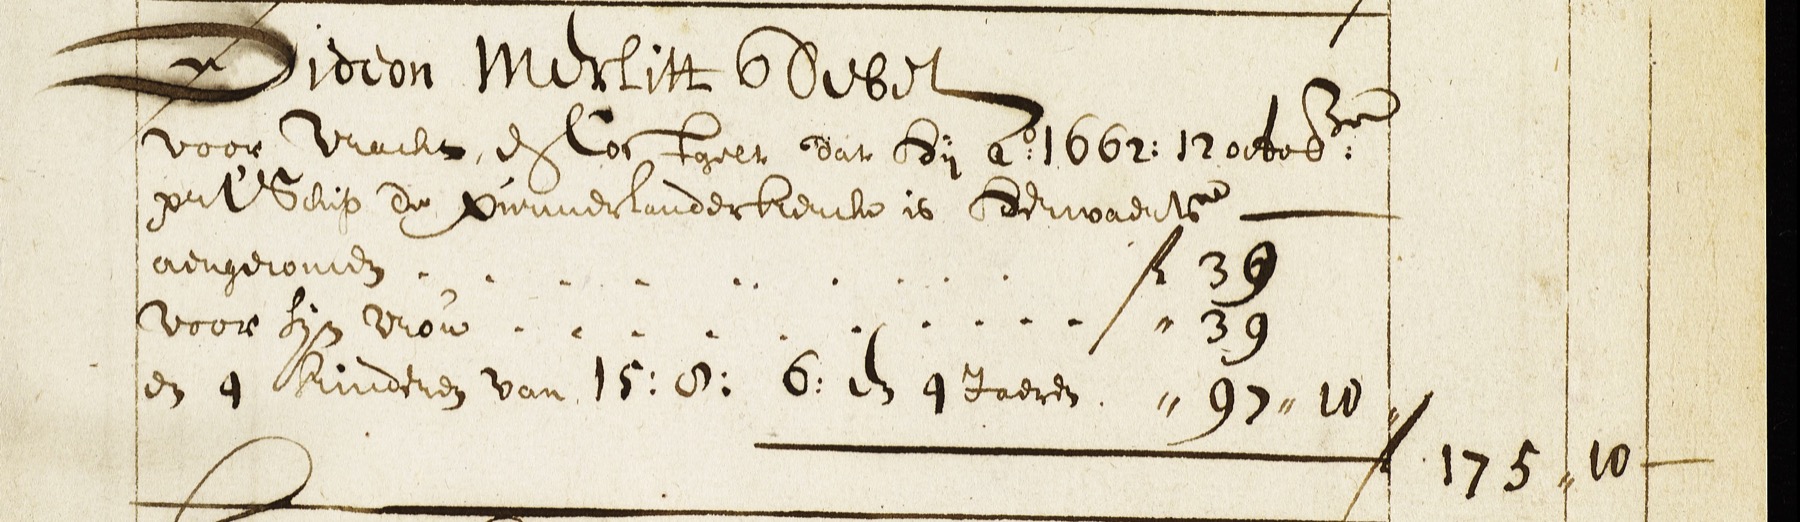 Gideon Merlitt Debet
voor vracht, en Costgelt dat hij Ao: 1662: 12 octob:
pr t' Schip de purmerlanderkercke is herwaerts
aengecomen . . . . . . . . . f 39
voor sijn vrou . . . . . . . . . " 39
en 4 kinderen van 15: 8: 6: en 4 Jaeren . " 97 " 10 "
175 " 10 —